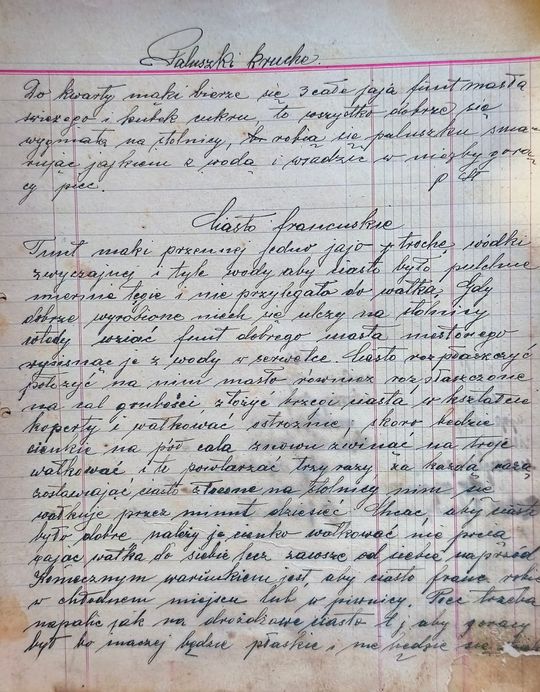 Paluszki kruche.
Do kwarty mąki bierze się 3 całe jaja funt masła
świeżego i kubek cukru, to wszystko dobrze się
wygniata na stolnicy, robią się paluszki sma-
rując jajkiem z wodą i wsadzić w niezby gorą-
cy piec.
Ciasto francuskie
Funt mąki przennej jedno jajo trochę wódki
zwyczajnej i tyle wody aby ciasto było
miernie tęgie i nie przylegało do wałka. Gdy
dobrze wyrobione niech na stolnicy
wtedy wziąć funt dobrego masła
wycisnąć je z wody w serwetce. Ciasto rozpłaszczyć
położyć na nim masło również rozpłaszczone
na cal grubości złożyć brzegi ciasta w kształcie
koperty i wałkować ostrożnie, skoro będzie
cienkie na pół cala znowu zwinąć na troje
wałkować i te powtarzać trzy razy za każdą razą
zostawiając ciasto złożone na stolnicy nim się
wałkuje przez minut dziesięć. Chcąc aby ciasto
było dobre należy je cienko wałkować nie
gając wałka do siebie lecz zawsze od siebie naprzód
Koniecznym warunkiem jest, aby ciasto franc. robić
w chłodnem miejscu lub w piwnicy. Piec trzeba
napalić jak na drożdżowe ciasto t.j. aby gorący
był bo inaczej będzie płaskie i nie będzie się